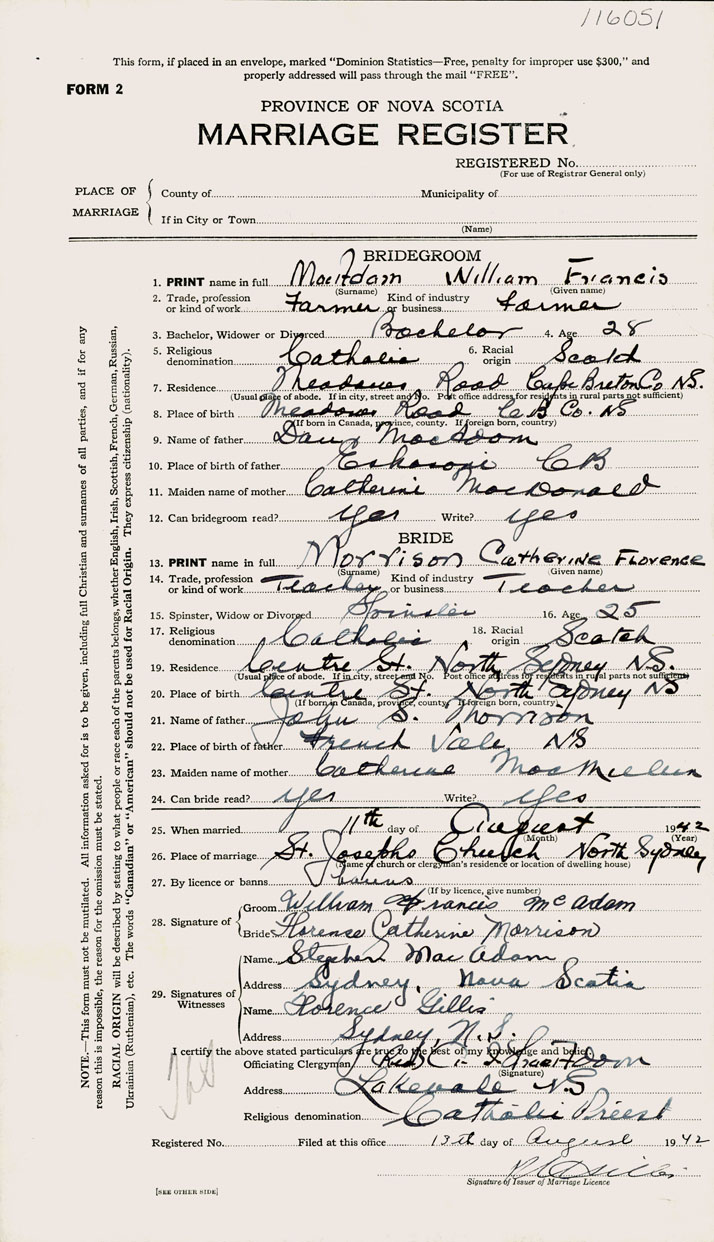 116051
This form, if placed in an envelope, marked "Dominion Statistics—Free, penalty for improper use $300," and
properly addressed will pass through the mail "FREE".
FORM 2
PROVINCE OF NOVA SCOTIA
MARRIAGE REGISTER
REGISTERED No.
(For use of Registrar General only)
PLACE OF MARRIAGE
County of Municipality of
If in City or Town
(Name)
BRIDEGROOM
1. PRINT name in full MacAdam William Francis
(Surname) (Given name)
2. Trade, profession or kind of work Farmer Kind of industry or business Farmer
3. Bachelor, Widower or Divorced Bachelor 4. Age 28
5. Religious denomination Catholic 6. Racial origin Scotch
7. Residence Meadows Road Cape Breton Co N.S.
(Usual place of abode. If in city, street and No. Post office address for residents in rural parts not sufficient)
8. Place of birth Meadows Road C B Co. NS
(If born in Canada, province, county. If foreign born, country)
9. Name of father Dan MacAdam
10. Place of birth of father Eskasoni CB
11. Maiden name of mother Catherine MacDonald
12. Can bridegroom read? yes Write? yes
BRIDE
13. PRINT name in full Morrison Catherine Florence
(Surname) (Given name)
14. Trade, profession or kind of work Teacher Kind of industry or business Teacher
15. Spinster, Widow or Divorced Spinster 16. Age 25
17. Religious denomination Catholic 18. Racial origin Scotch
19. Residence Centre St. North Sydney N.S.
(Usual place of abode. If in city, street and No. Post office address for residents in rural parts not sufficient)
20. Place of birth Centre St. North Sydney NS
(If born in Canada, province, county. If foreign born, country)
21. Name of father John S. Morrison
22. Place of birth of father French Vale NS
23. Maiden name of mother Catherine MacMullin
24. Can bride read? yes Write? yes
25. When married 11th day of August 1942
(Month) (Year)
26. Place of marriage St. Josephs Church North Sydney
(Name of church or clergyman's residence or location of dwelling house)
27. By licence or banns banns
(If by licence, give number)
28. Signature of
Groom William Francis McAdam
Bride Florence Catherine Morrison
29. Signatures of Witnesses
Name Stephen MacAdam
Address Sydney, Nova Scotia
Name Florence Gillis
Address Sydney, N.S.
I certify the above stated particulars are true to the best of my knowledge and belief.
Officiating Clergyman Rev. MacAdam
(Signature)
Address Lakevale NS
Religious denomination Catholic Priest
Registered No. Filed at this office 13th day of August 1942
Signature of Issuer of Marriage Licence
[SEE OTHER SIDE]
NOTE.—This form must not be mutilated. All information asked for is to be given, including full Christian and surnames of all parties, and if for any
reason this is impossible, the reason for the omission must be stated.
RACIAL ORIGIN will be described by stating to what people or race each of the parents belongs, whether English, Irish, Scottish, French, German, Russian,
Ukrainian (Ruthenian), etc. The words "Canadian" or "American" should not be used for Racial Origin. They express citizenship (nationality).